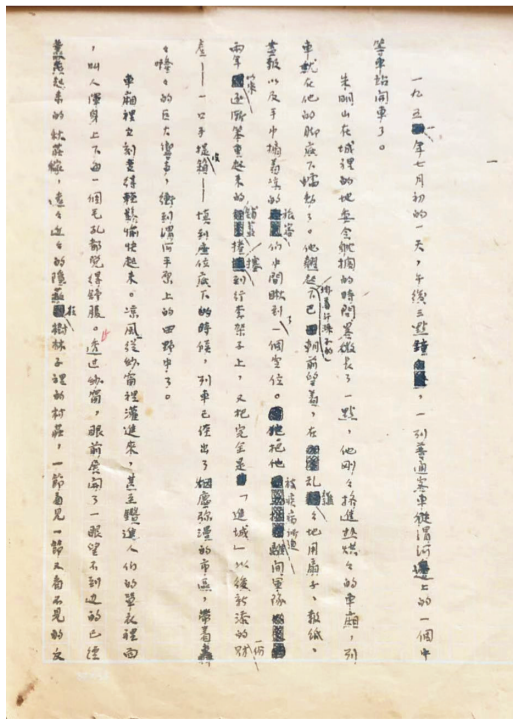 一
一九五一年七月初的一天，午後三點鐘，一列普通客車從渭河邊上的一個中
等車站開車了。
朱明山在城裡的地委會躭擱的時間畧微長了一點，他剛々擠進熱烘々的車廂，列
車就在他的脚底下蠕動了。他翹起下巴朝前望着，在亂々地用扇子、報紙、
畫報以及手巾搧着凉的旅客們中間瞅到一個空位。他把他被疾病所迫離開軍隊
兩年以來逐漸笨重起來的鋪蓋捲擱到行李架子上，又把完全是「進城」以後新添的財
產——一口手提箱——填到座位底下的時候，列車已經出了烟塵弥漫的市區，帶着
々嚓々的巨大響聲，衝到渭河平原上的田野中了。
車廂裡立刻變得輕鬆愉快起來。凉風從紗窗裡灌進來，甚至鑽進人們的單衣裡面
，叫人渾身上下每一個毛孔都覺得舒服。透过紗窗，眼前展開了一眼望不到边的已經
起來的秋莊稼，遠々近々的隱在樹林子裡的村莊，一節看見一節又看不見的文